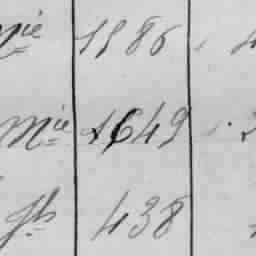 Mie 1186
Mie 1649
Jh 438